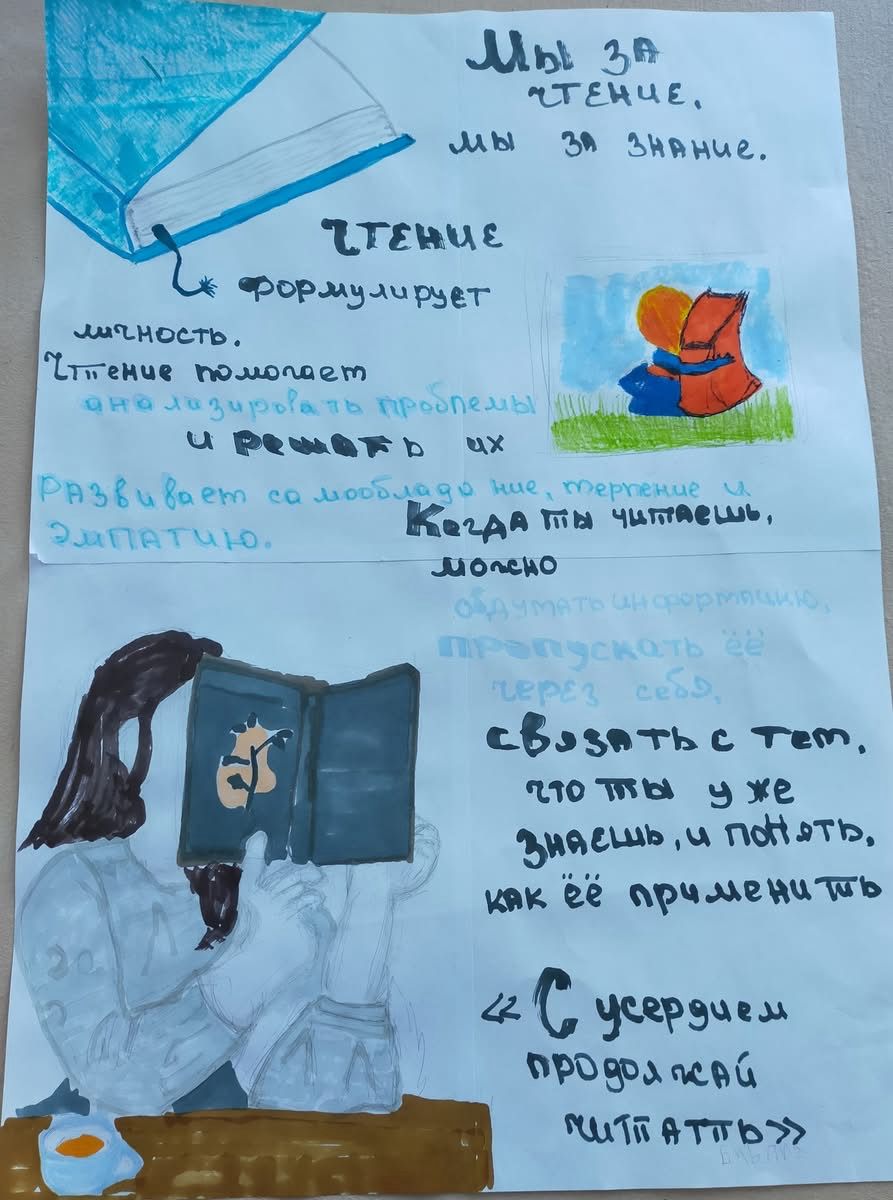 Мы за
чтение.
мы за знание.
Чтение
формулирует
личность.
Чтение помогает
анализировать проблемы
и решать их
Развивает самообладание, терпение и
эмпатию.
Когда ты читаешь,
можно
обдумать информацию,
пропускать ёё
через себя,
связать с тем,
что ты уже
знаешь, и понять,
как ёё применить
«С усердием
продолжай
читать»